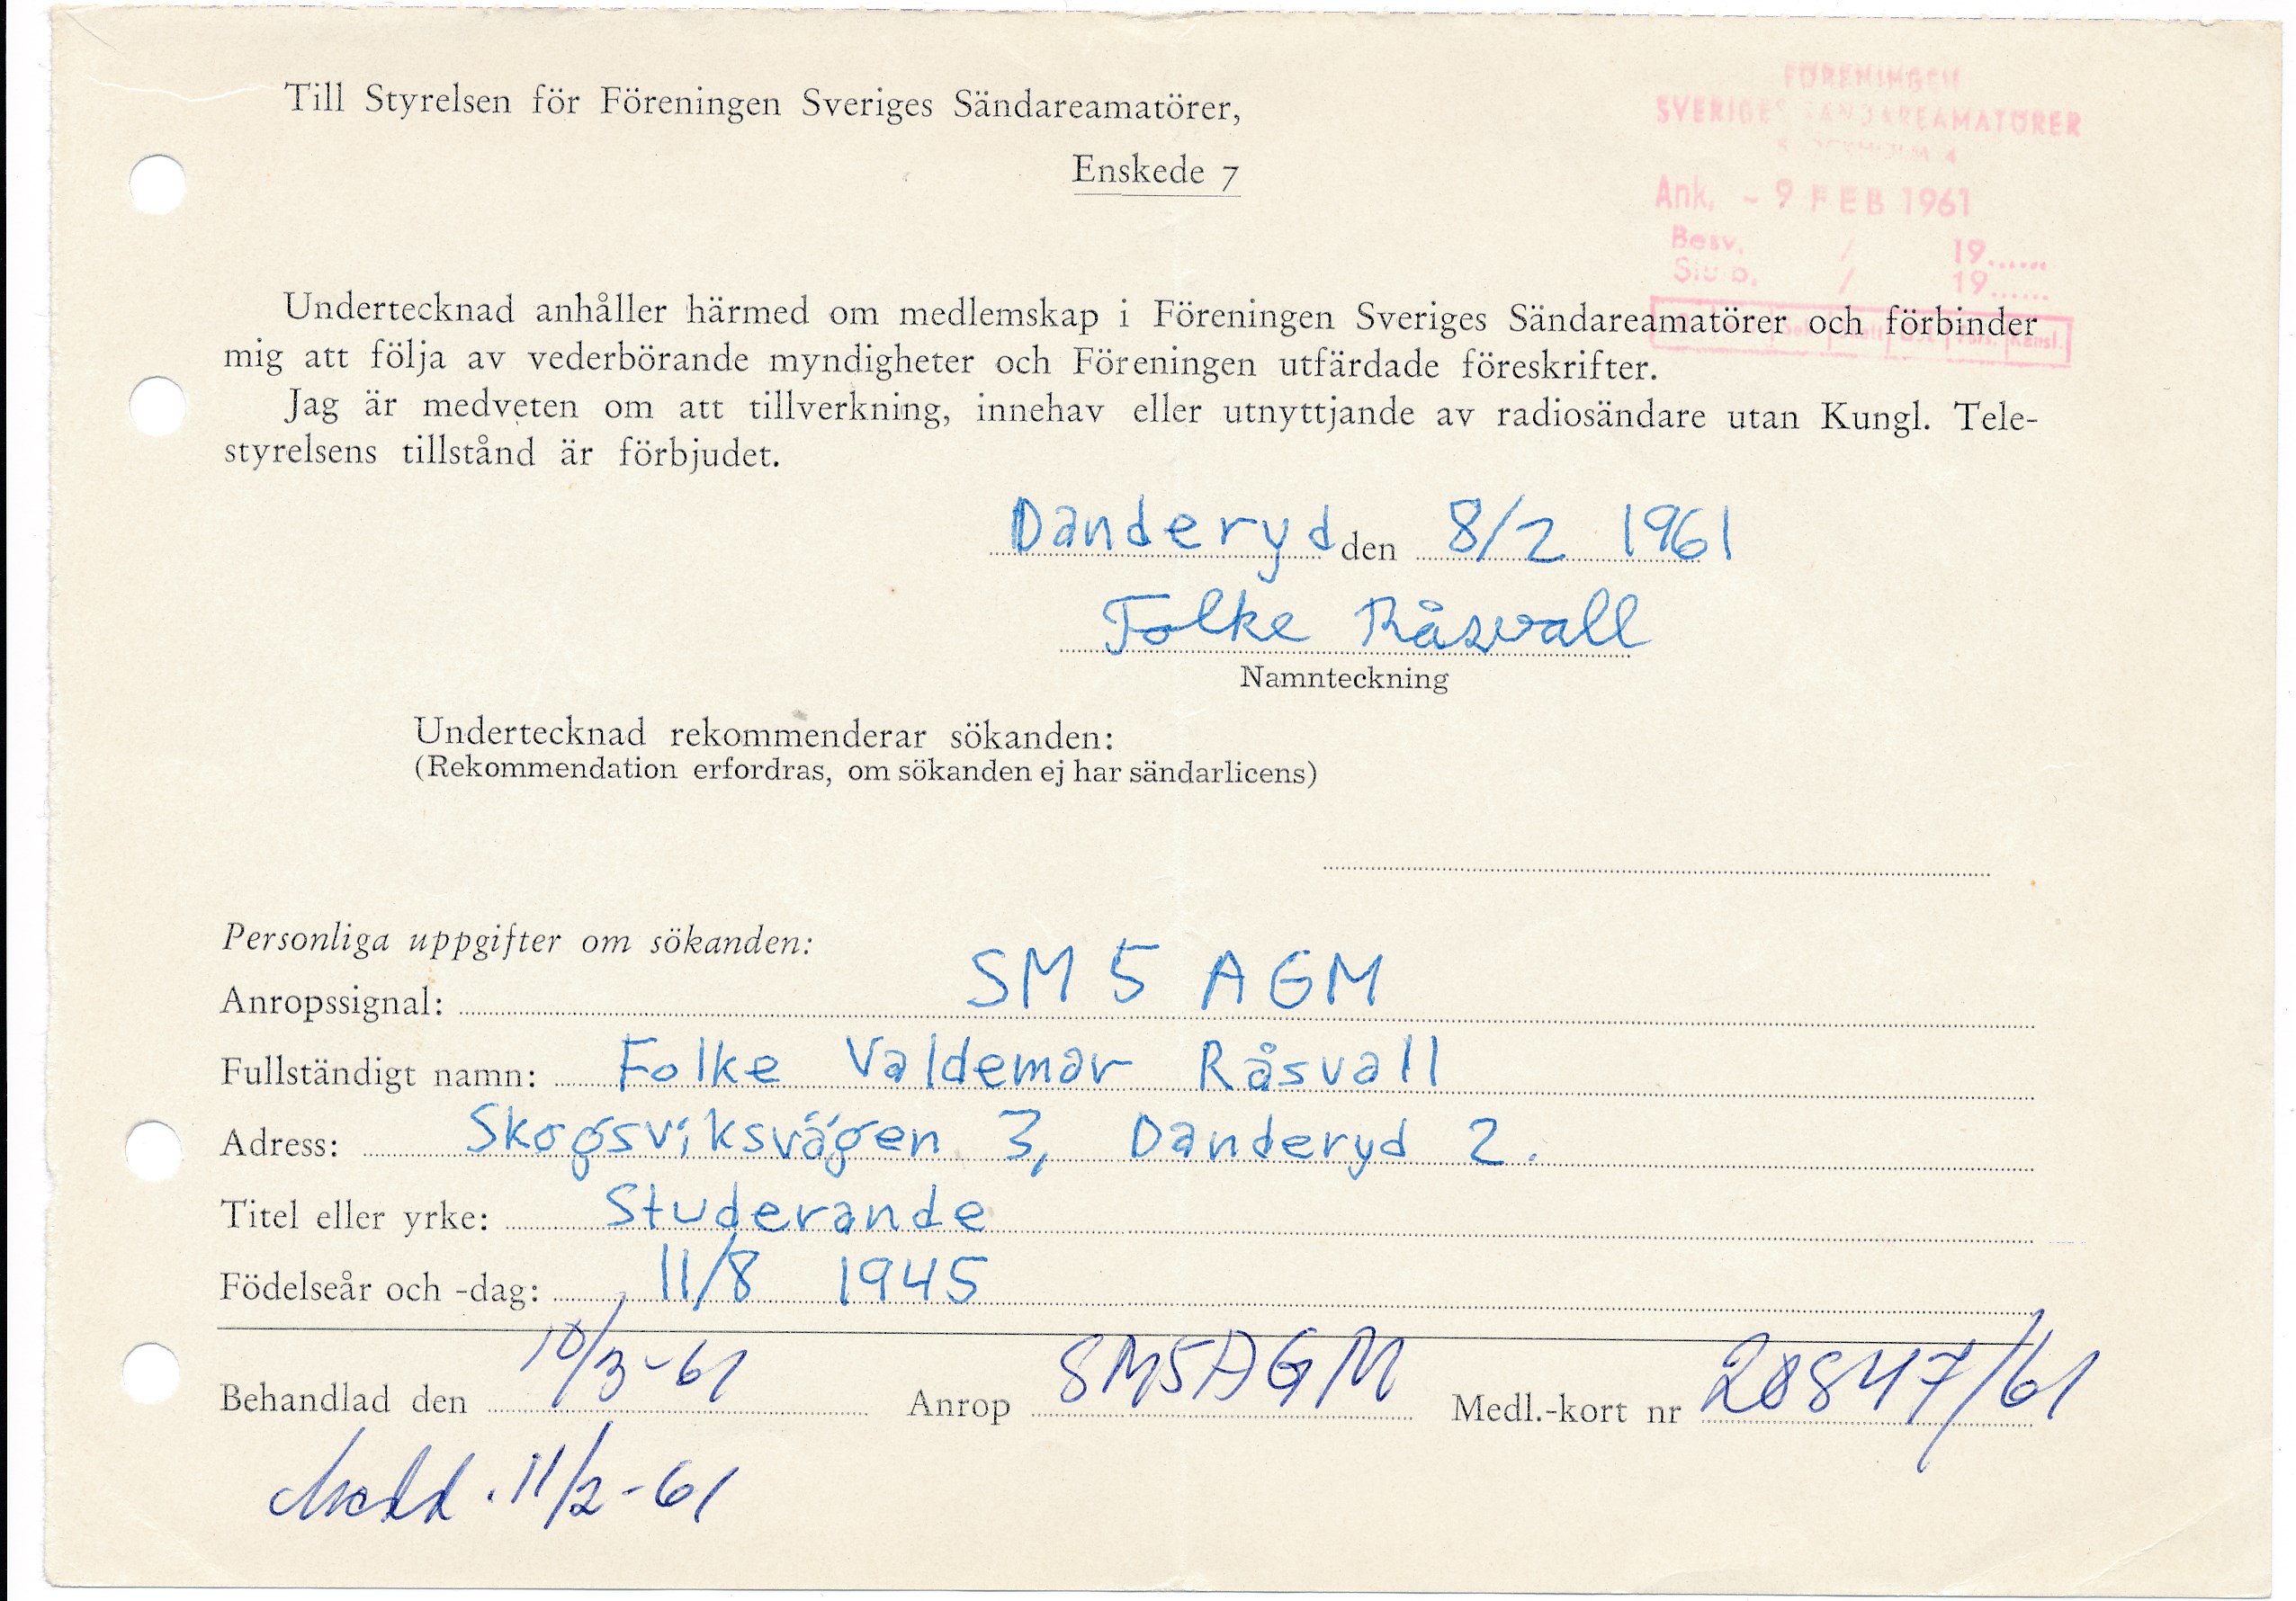 Till Styrelsen för Föreningen Sveriges Sändareamatörer,
Enskede 7
FÖRENINGEN
SVERIGES SÄNDAREAMATÖRER
Ank. - 9 FEB 1961
Besv. / 19......
/ 19......
Kansl.
Undertecknad anhåller härmed om medlemskap i Föreningen Sveriges Sändareamatörer och förbinder
mig att följa av vederbörande myndigheter och Föreningen utfärdade föreskrifter.
Jag är medveten om att tillverkning, innehav eller utnyttjande av radiosändare utan Kungl. Tele-
styrelsens tillstånd är förbjudet.
Danderyd den 8/2 1961
Folke Råsvall
Namnteckning
Undertecknad rekommenderar sökanden:
(Rekommendation erfordras, om sökanden ej har sändarlicens)
Personliga uppgifter om sökanden:
Anropssignal: SM 5 AGM
Fullständigt namn: Folke Valdemar Råsvall
Adress: Skogsviksvägen 3, Danderyd 2.
Titel eller yrke: Studerande
Födelseår och -dag: 11/8 1945
Behandlad den 10/3-61 Anrop SM5AGM Medl.-kort nr 20847/61
Medd. 11/2-61